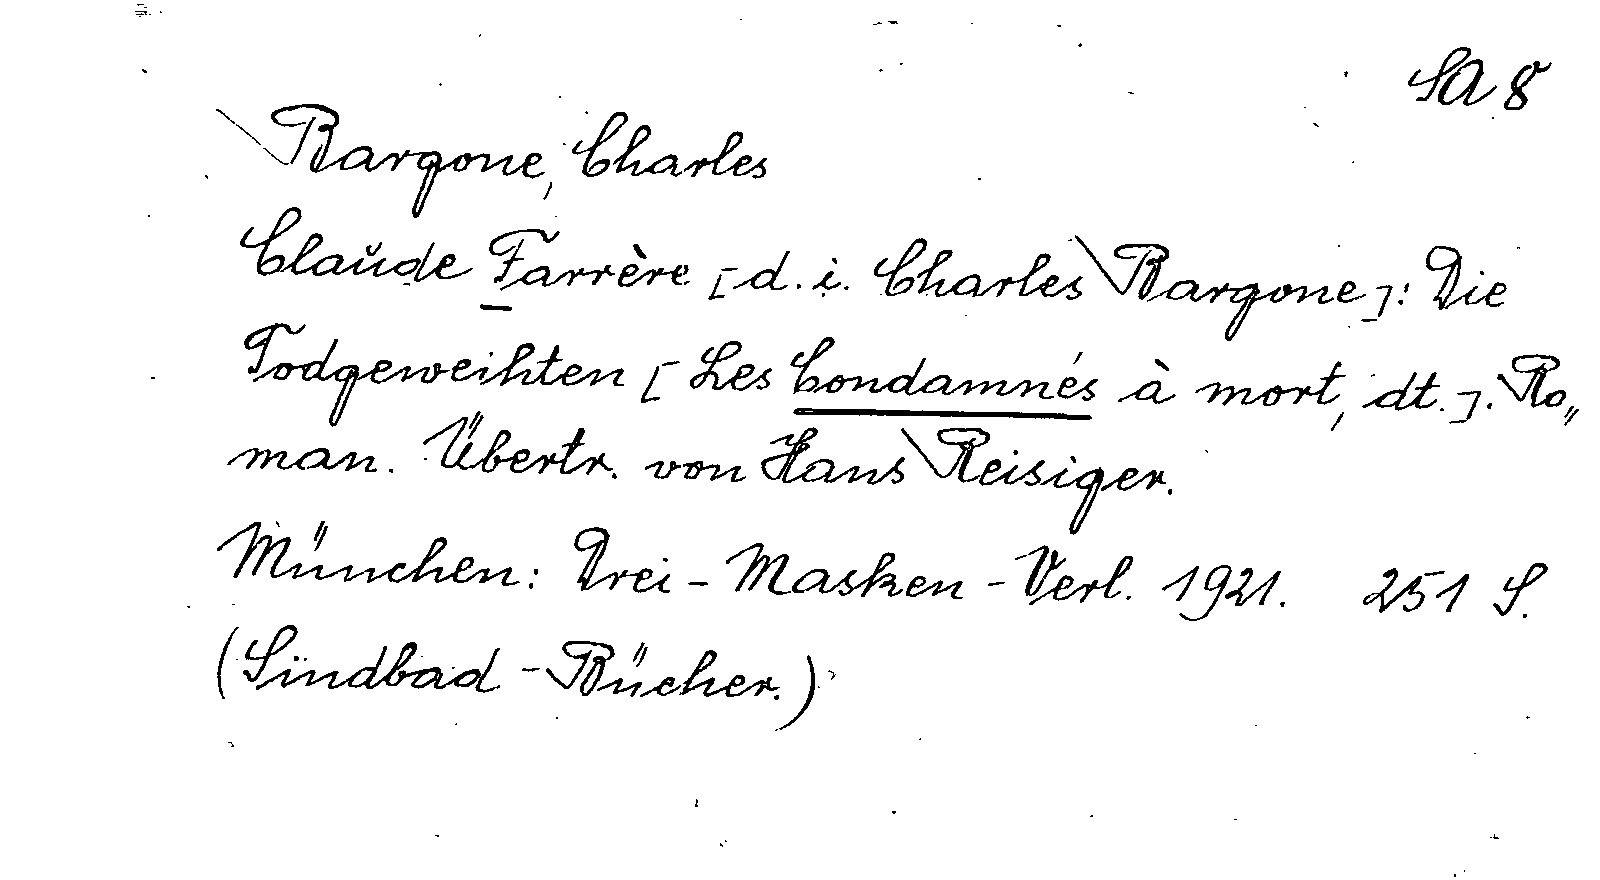 SA 8
Bargone, Charles
Claude Farrère [d. i. Charles Bargone]: Die
Todgeweihten [Les Condamnés à mort, dt.]. Ro„
man. Übertr. von Hans Reisiger.
München: Drei-Masken-Verl. 1921. 251 S.
(Sindbad-Bücher.)